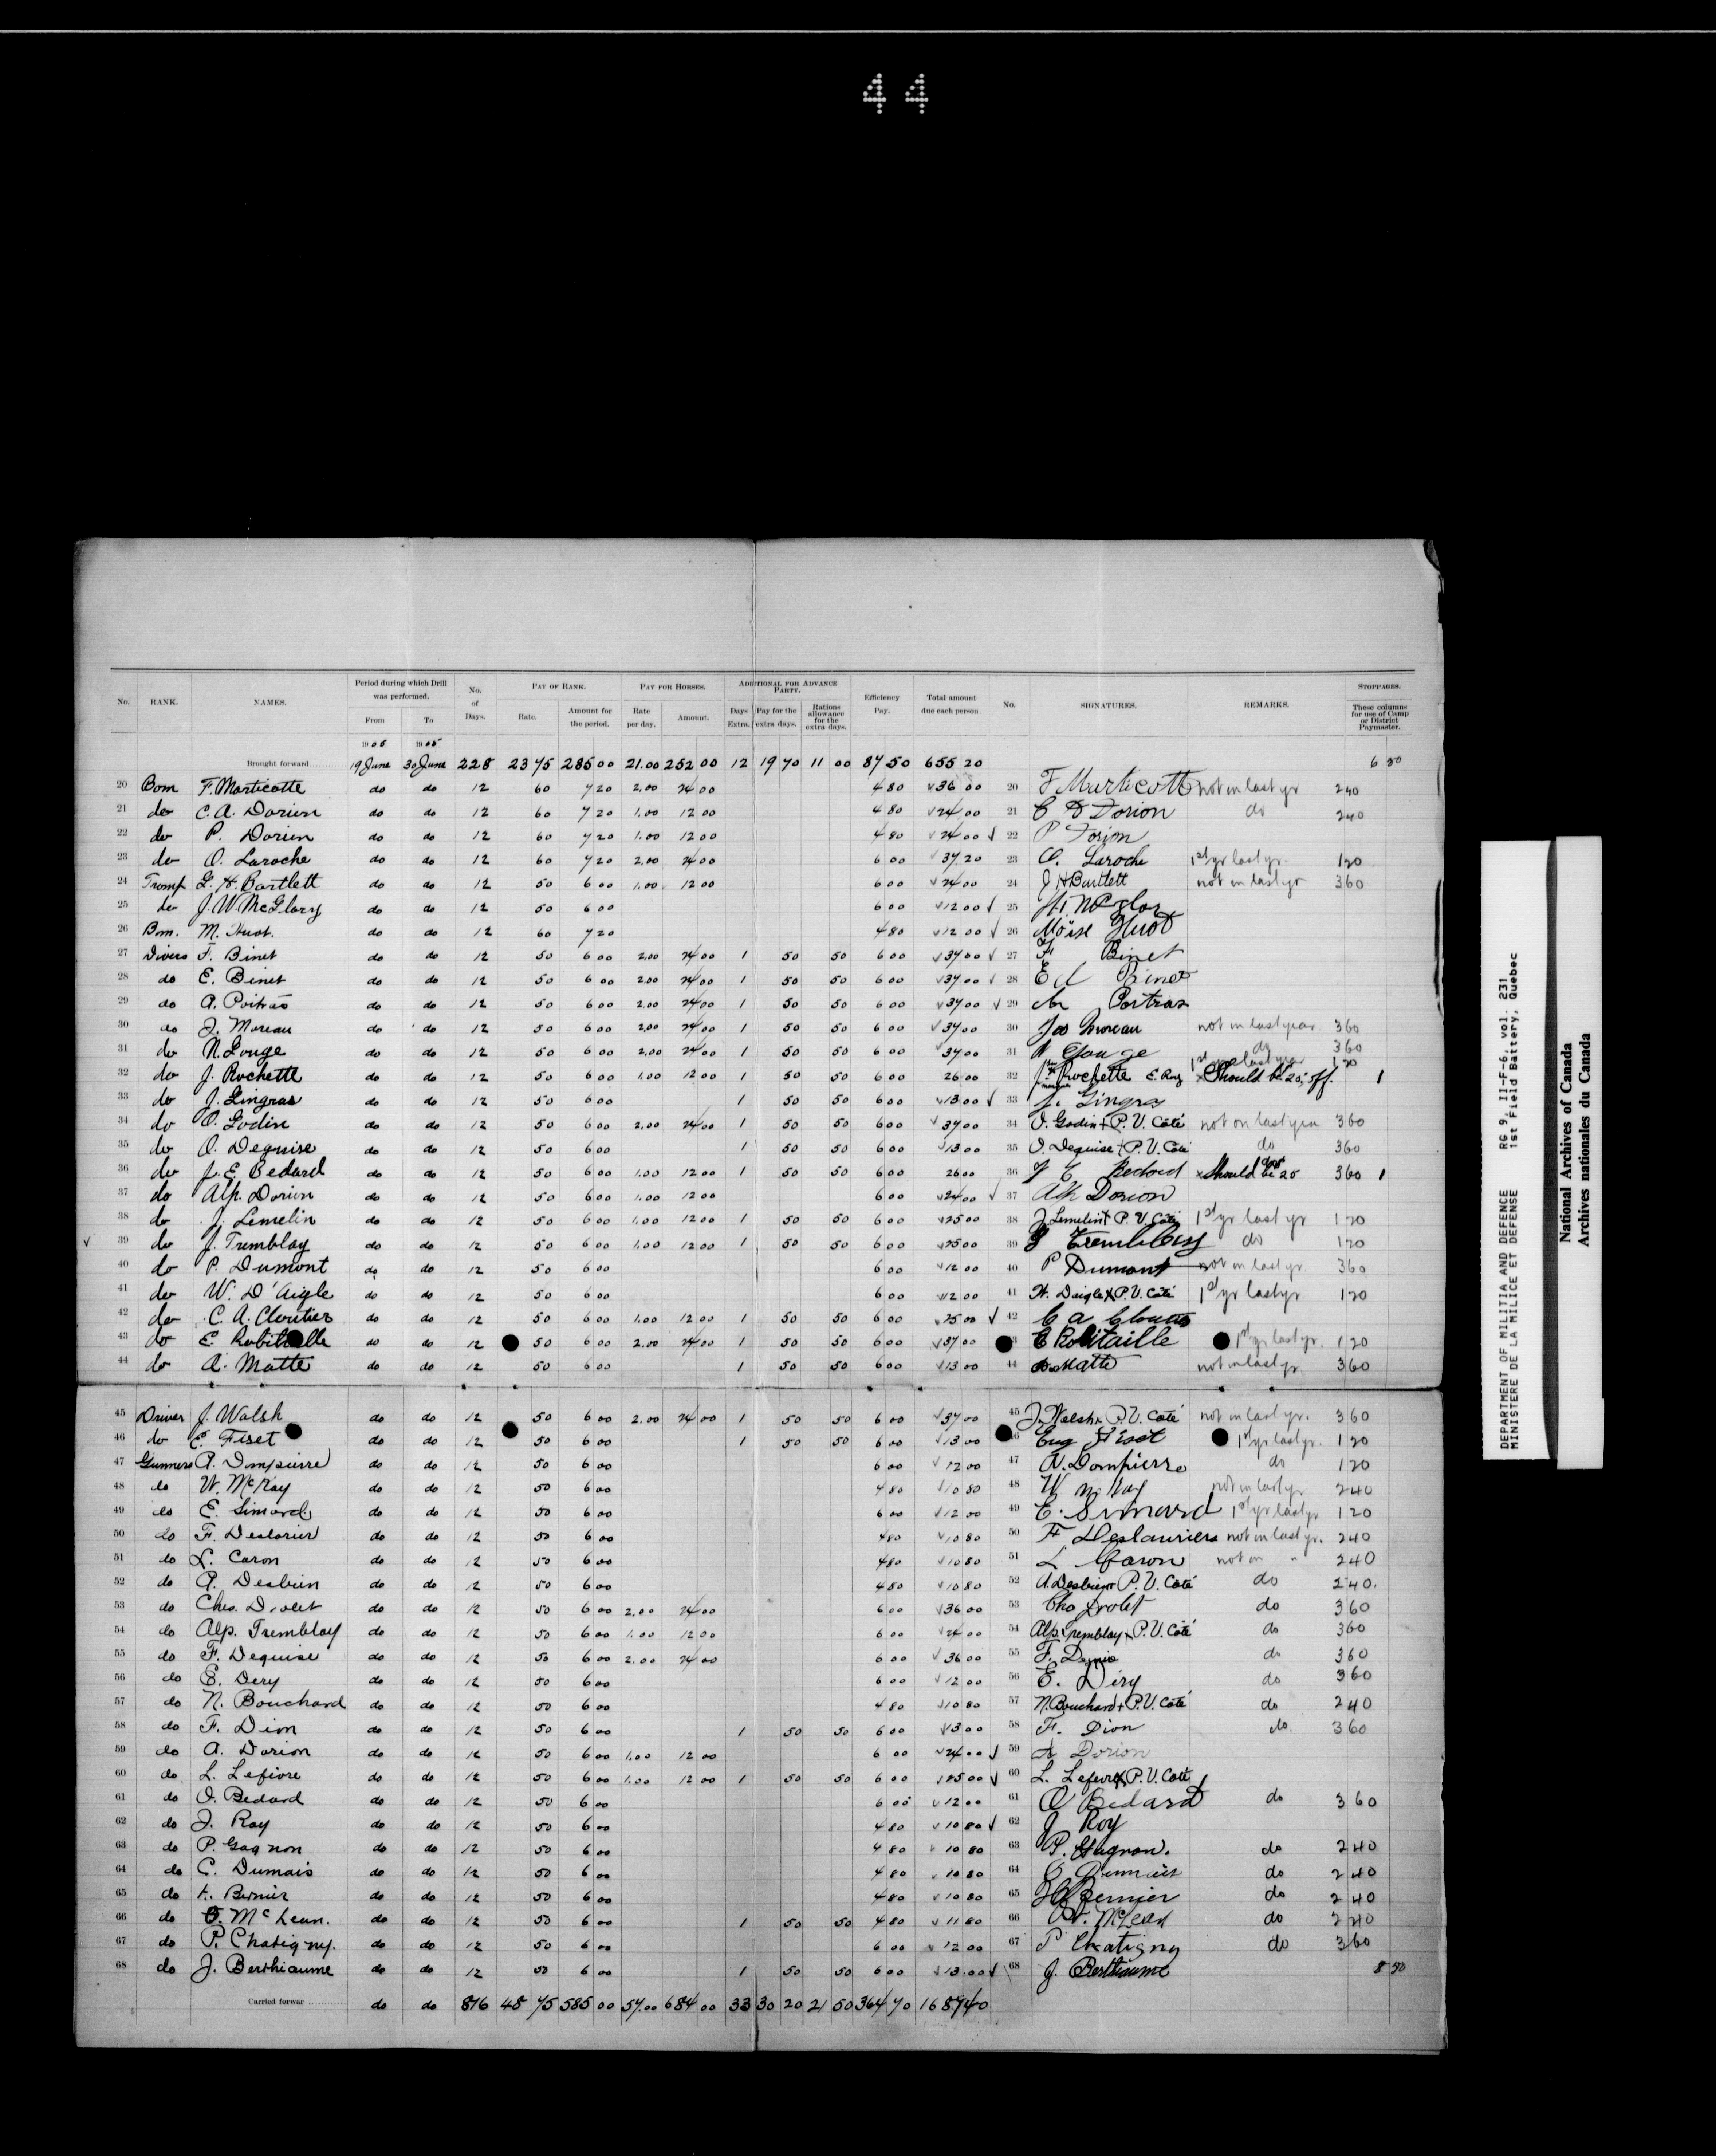 44
No. RANK. NAMES. Period during which Drill was performed. From To No. of Days. PAY OF RANK. Rate. Amount for the period. PAY FOR HORSES. Rate per day. Amount. ADDITIONAL FOR ADVANCE PARTY. Days Extra. Pay for the extra days. Rations allowance for the extra days. Efficiency Pay. Total amount due each person No. SIGNATURES. REMARKS. STOPPAGES. These columns for use of Camp or District Paymaster.
1905 1905
Brought forward 19 June 30 June 228 23 75 285 00 21.00 252 00 12 19 70 11 00 87 50 655 20 6 50
20 Bom F. Marticotte do do 12 60 7 20 2,00 24 00 4 80 36 00 20 F Marticotte not in last yr 2 40
21 do C. A. Dorion do do 12 60 7 20 1,00 12 00 4 80 24 00 21 C A Dorion do 2 40
22 do P. Dorion do do 12 60 7 20 1.00 12 00 4 80 24 00 22 P Dorion
23 do O. Laroche do do 12 60 7 20 2,00 24 00 6 00 37 20 23 O. Laroche 1st yr last yr. 1 20
24 Tromp G. H. Bartlett do do 12 50 6 00 1.00 12 00 6 00 24 00 24 G H Bartlett not in last yr 3 60
25 do J. W. McGlory do do 12 50 6 00 6 00 12 00 25
26 Bom. M. Huot. do do 12 60 7 20 4 80 12 00 26 Moïse Huot
27 Divers F. Binet do do 12 50 6 00 2,00 24 00 1 50 50 6 00 37 00 27 F Binet
28 do E. Binet do do 12 50 6 00 2.00 24 00 1 50 50 6 00 37 00 28 Ed Binet
29 do A. Poitras do do 12 50 6 00 2.00 24 00 1 50 50 6 00 37 00 29 Poitras
30 do J. Moreau do do 12 50 6 00 2,00 24 00 1 50 50 6 00 37 00 30 Jos Moreau not in last year 3 60
31 do N. Gouge do do 12 50 6 00 2,00 24 00 1 50 50 6 00 37 00 31 N Gouge do 3 60
32 do J. Rochette do do 12 50 6 00 1.00 12 00 1 50 50 6 00 26 00 32 J. Rochette E. Roy 1st yr last year x Should be 25; off. 1 20 1
33 do J. Gingras do do 12 50 6 00 1 50 50 6 00 13 00 33 J. Gingras
34 do O. Godin do do 12 50 6 00 2,00 24 00 1 50 50 6 00 37 00 34 O. Godin + P. V. Coté not on last year 3 60
35 do O. Deguise do do 12 50 6 00 1 50 50 6 00 13 00 35 O. Deguise + P. V. Coté do 3 60
36 do J. E. Bedard do do 12 50 6 00 1.00 12 00 1 50 50 6 00 26 00 36 J E Bedard x Should be 25 3 60 1
37 do Alp. Dorion do do 12 50 6 00 1.00 12 00 6 00 24 00 37 Alp Dorion
38 do J. Lemelin do do 12 50 6 00 1.00 12 00 1 50 50 6 00 25 00 38 J. Lemelin + P. V. Coté 1st yr last yr 1 20
39 do J. Tremblay do do 12 50 6 00 1.00 12.00 1 50 50 6 00 25 00 39 J Tremblay do 1 20
40 do P. Dumont do do 12 50 6 00 6 00 12 00 40 P Dumont not in last yr 3 60
41 do W. D'Aigle do do 12 50 6 00 6 00 12 00 41 W. Daigle x P. V. Coté 1st yr last yr 1 20
42 do C. A. Cloutier do do 12 50 6 00 1.00 12 00 1 50 50 6 00 25 00 42 C A Cloutier
43 do E. Robitaille do do 12 50 6 00 2.00 24 00 1 50 50 6 00 37 00 43 E Robitaille 1st yr last yr. 1 20
44 do A. Matte do do 12 50 6 00 1 50 50 6 00 13 00 44 A. Matte not in last yr 3 60
45 Driver J. Walsh do do 12 50 6 00 2.00 24 00 1 50 50 6 00 37 00 45 J. Welsh x P. V. Coté not in last yr. 3 60
46 do E. Fiset do do 12 50 6 00 1 50 50 6 00 13 00 46 Eug Fiset 1st yr last yr. 1 20
47 Gunners A. Dompierre do do 12 50 6 00 6 00 12 00 47 A. Dompierre do 1 20
48 do W. McKay do do 12 50 6 00 4 80 10 80 48 W McKay not in last yr 2 40
49 do E. Simard do do 12 50 6 00 6 00 12 00 49 E. Simard 1st yr last yr 1 20
50 do F. Deslorier do do 12 50 6 00 4 80 10 80 50 F Deslauriers not in last yr. 2 40
51 do L. Caron do do 12 50 6 00 4 80 10 80 51 L Caron not in " 2 40
52 do A. Desbien do do 12 50 6 00 4 80 10 80 52 A. Desbien + P. V. Coté do 2 40.
53 do Chs. Drolet do do 12 50 6 00 2,00 24 00 6 00 36 00 53 Chs Drolet do 3 60
54 do Alp. Tremblay do do 12 50 6 00 1.00 12 00 6 00 24 00 54 Alp. Tremblay x P. V. Coté do 3 60
55 do F. Deguise do do 12 50 6 00 2.00 24 00 6 00 36 00 55 F. Deguise do 3 60
56 do E. Dery do do 12 50 6 00 6 00 12 00 56 E. Déry do 3 60
57 do N. Bouchard do do 12 50 6 00 4 80 10 80 57 N. Bouchard + P. V. Coté do 2 40
58 do F. Dion do do 12 50 6 00 1 50 50 6 00 13 00 58 F. Dion do. 3 60
59 do A. Dorion do do 12 50 6 00 1.00 12 00 6 00 24 00 59 A Dorion
60 do L. Lefivre do do 12 50 6 00 1.00 12 00 1 50 50 6 00 25 00 60 L. Lefevre x P. V. Coté
61 do O. Bedard do do 12 50 6 00 6 00 12 00 61 O Bedard do 3 60
62 do J. Roy do do 12 50 6 00 4 80 10 80 62 J Roy
63 do P. Gagnon do do 12 50 6 00 4 80 10 80 63 P. Gagnon. do 2 40
64 do C. Dumais do do 12 50 6 00 4 80 10 80 64 C Dumais do 2 40
65 do A. Bernier do do 12 50 6 00 4 80 10 80 65 Bernier do 2 40
66 do O. McLean. do do 12 50 6 00 1 50 50 4 80 11 80 66 McLean do 2 40
67 do P. Chatigny. do do 12 50 6 00 6 00 12 00 67 P Chatigny do 3 60
68 do J. Berthiaume do do 12 50 6 00 1 50 50 6 00 13.00 68 J. Berthiaume 8 50
Carried forwar do do 816 48 75 585 00 57.00 684 00 33 30 20 21 50 364 70 1687 40
DEPARTMENT OF MILITIA AND DEFENCE RG 9, II-F-6, vol. 231
MINISTERE DE LA MILICE ET DEFENSE 1st Field Battery, Quebec
National Archives of Canada
Archives nationales du Canada